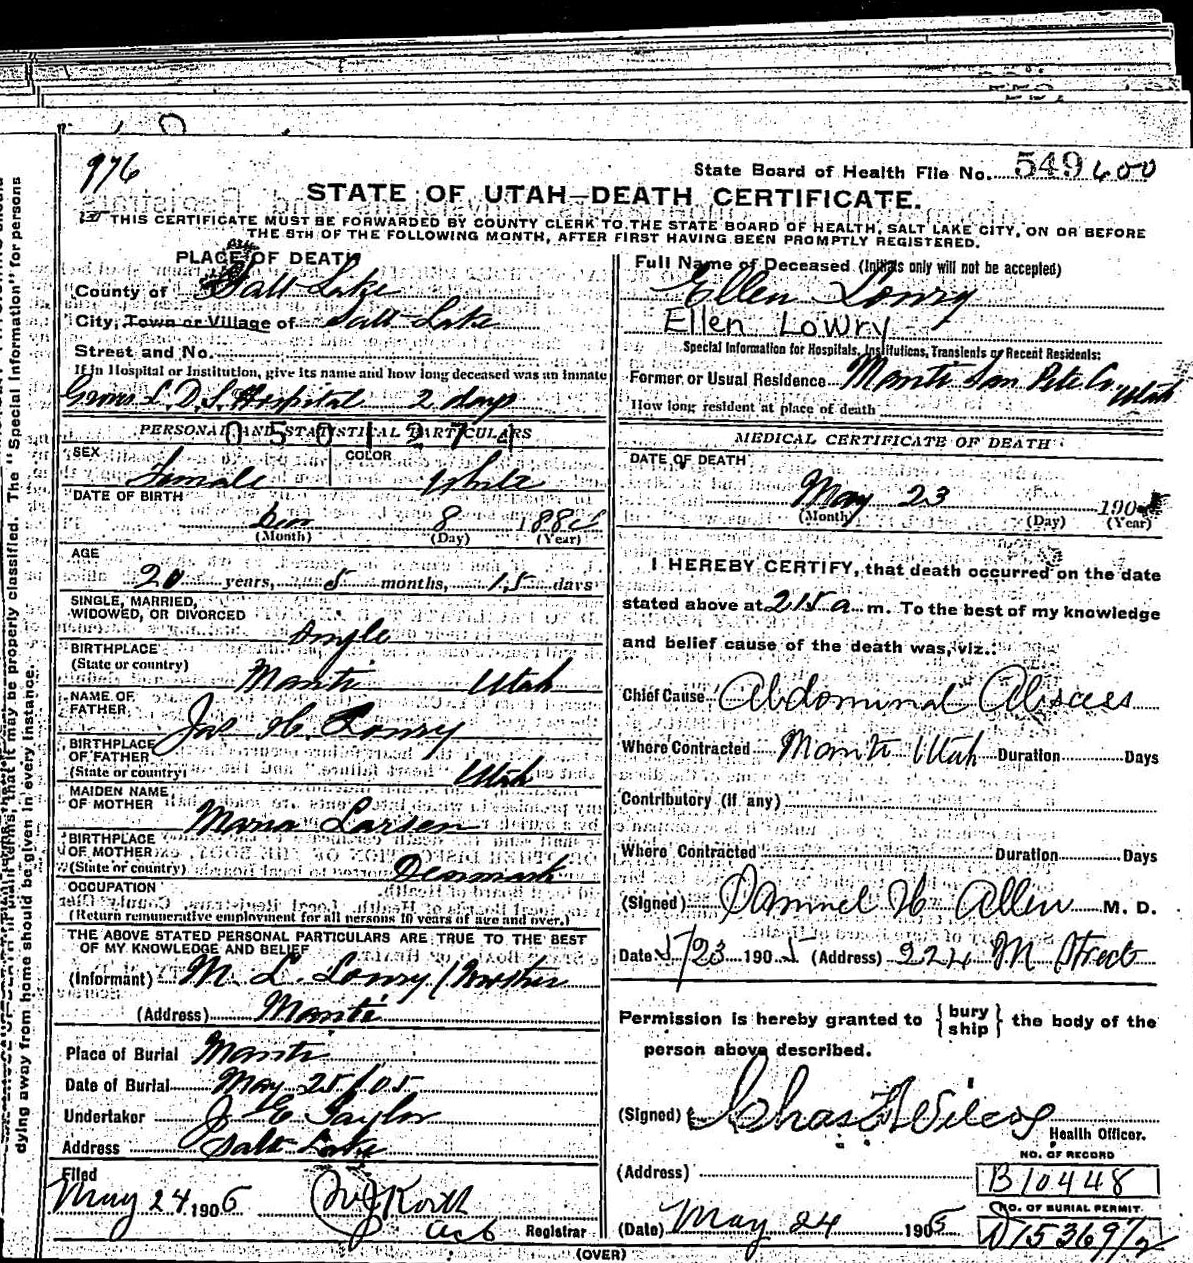 976
State Board of Health File No. 549600
STATE OF UTAH—DEATH CERTIFICATE.
THIS CERTIFICATE MUST BE FORWARDED BY COUNTY CLERK TO THE STATE BOARD OF HEALTH, SALT LAKE CITY, ON OR BEFORE
THE 5TH OF THE FOLLOWING MONTH, AFTER FIRST HAVING BEEN PROMPTLY REGISTERED.
PLACE OF DEATH
County of Salt Lake
City, Town or Village of Salt Lake
Street and No.
If in Hospital or Institution, give its name and how long deceased was an inmate
L.D.S. Hospital 2 days
PERSONAL AND STATISTICAL PARTICULARS
0501274
SEX
COLOR
Female White
DATE OF BIRTH
8 188
(Month) (Day) (Year)
AGE
20 years, 5 months, 15 days
SINGLE, MARRIED,
WIDOWED, OR DIVORCED
Single
BIRTHPLACE
(State or country)
Manti Utah
NAME OF
FATHER
Jas H. Lowry
BIRTHPLACE
OF FATHER
(State or country)
Utah
MAIDEN NAME
OF MOTHER
Maria Larsen
BIRTHPLACE
OF MOTHER
(State or country)
Denmark
OCCUPATION
(Return remunerative employment for all persons 10 years of age and over.)
THE ABOVE STATED PERSONAL PARTICULARS ARE TRUE TO THE BEST
OF MY KNOWLEDGE AND BELIEF
(Informant) M. L. Lowry
(Address) Manti
Place of Burial Manti
Date of Burial May 25/05
Undertaker J E Taylor
Address Salt Lake
Filed
May 24 1905
W J Korth
Registrar
Full Name of Deceased (Initials only will not be accepted)
Ellen Lowry
Ellen Lowry
Special Information for Hospitals, Institutions, Transients or Recent Residents:
Former or Usual Residence Manti San Pete Co. Utah
How long resident at place of death
MEDICAL CERTIFICATE OF DEATH
DATE OF DEATH
May 23 1905
(Month) (Day) (Year)
I HEREBY CERTIFY, that death occurred on the date
stated above at 2 15 a m. To the best of my knowledge
and belief cause of the death was, viz.:
Chief Cause Abdominal Abscess
Where Contracted Manti Utah Duration Days
Contributory (if any)
Where Contracted Duration Days
(Signed) Samuel H Allen M. D.
Date 5/23 1905 (Address) 224 M Street
Permission is hereby granted to {bury ship} the body of the
person above described.
(Signed) Chas Wilcox
Health Officer.
(Address)
NO. OF RECORD
B10448
NO. OF BURIAL PERMIT
D15369 1/2
(Date) May 24 1905
(OVER)
dying away from home should be given in every instance.
that it may be properly classified. The "Special Information" for persons